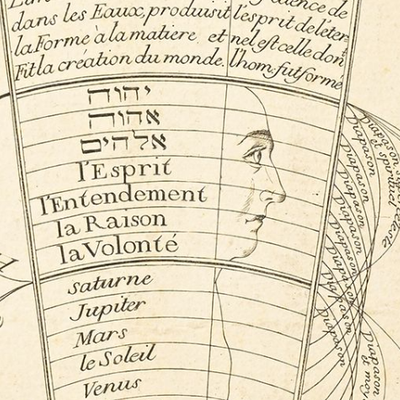 dans les Eaux, produisit l'esprit de l'éter
la Forme à la matiere et nel est celle don
Fit la création du monde. l'hom fut formé
יהוה
אהוה
אלהים
l'Esprit
l'Entendement
la Raison
la Volonté
saturne
Jupiter
Mars
le Soleil
Venus
Diapason
et spirituel celeste
Diapason
Diapason
Diapason
Diapason
Diapason
Diapason
Diapason
et moy